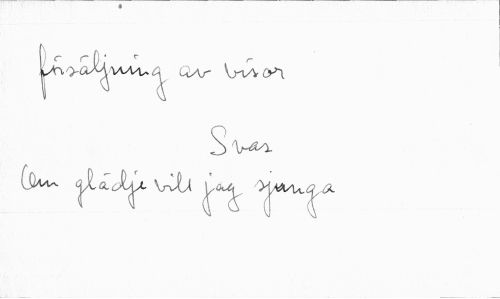 försäljning av visor
Svar
Om glädje vill jag sjunga